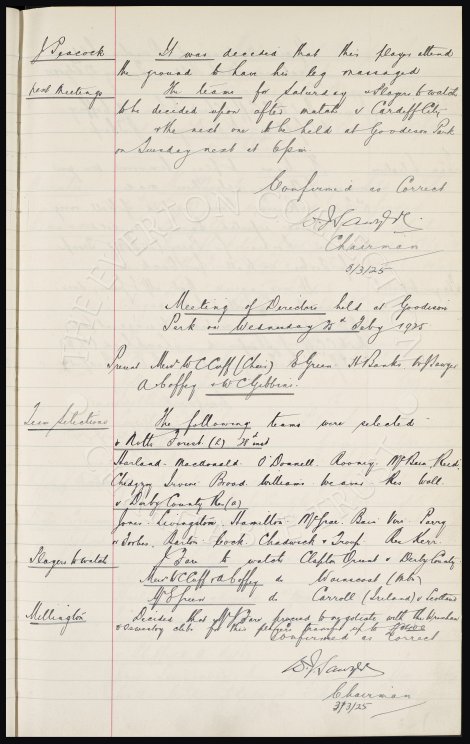 J Peacock
It was decided that this player attend
the ground to have his leg massaged
next Meetings
The teams for Saturday & Players to watch
to be decided upon after match v Cardiff City
& the next one to be held at Goodison Park
on Sunday next at 6pm.
Confirmed as Correct
Chairman
3/3/25
Meeting of Directors held at Goodison
Park on Wednesday 25th Feby 1925
Present Messrs W C Cuff (Chair) E Green H Banks W Sawyer
A Coffey & W C Gibbins.
Team Selections
The following teams were selected
v Notts Forest (L)
Harland. Macdonald. O'Donnell. Rooney. McBain. Reid.
Chedgzoy Irvine Broad. Williams Weaver. Res Wall
v Derby County Res (a)
Jones. Livingston. Hamilton. McGrae. Bain Virr. Parry
& Forbes. Barton. Cock. Chadwick & Troup. Res Kerr.
Players to watch
J Farr to watch Clapton Orient v Derby County
Messrs W C Cuff & A Coffey do
Mr E Green do Carroll (Ireland) v Scotland
Millington
Decided that Mr J Farr proceed to negotiate with the Wrexham
& Coventry clubs for this player's transfer up to
Confirmed as Correct
Chairman
3/3/25
THE EVERTON COLLECTION